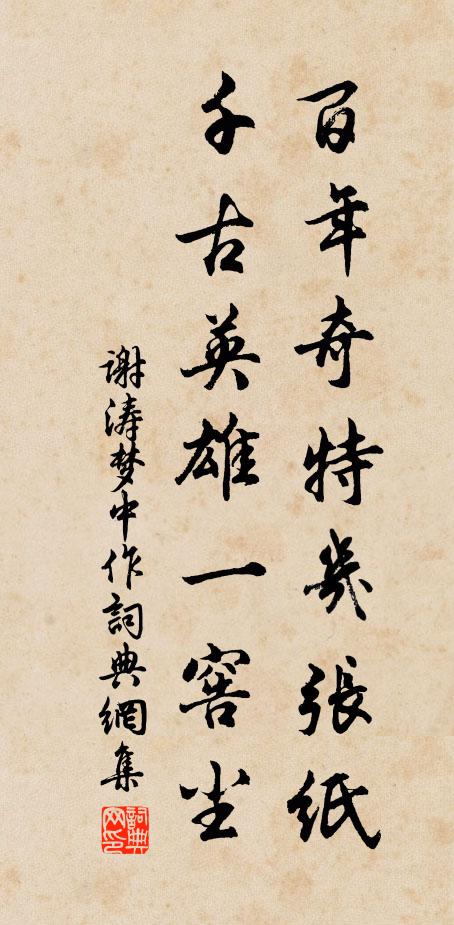 百年奇特幾張紙
千古英雄一窖尘
谢涛梦中作詞典網集
詞典网印